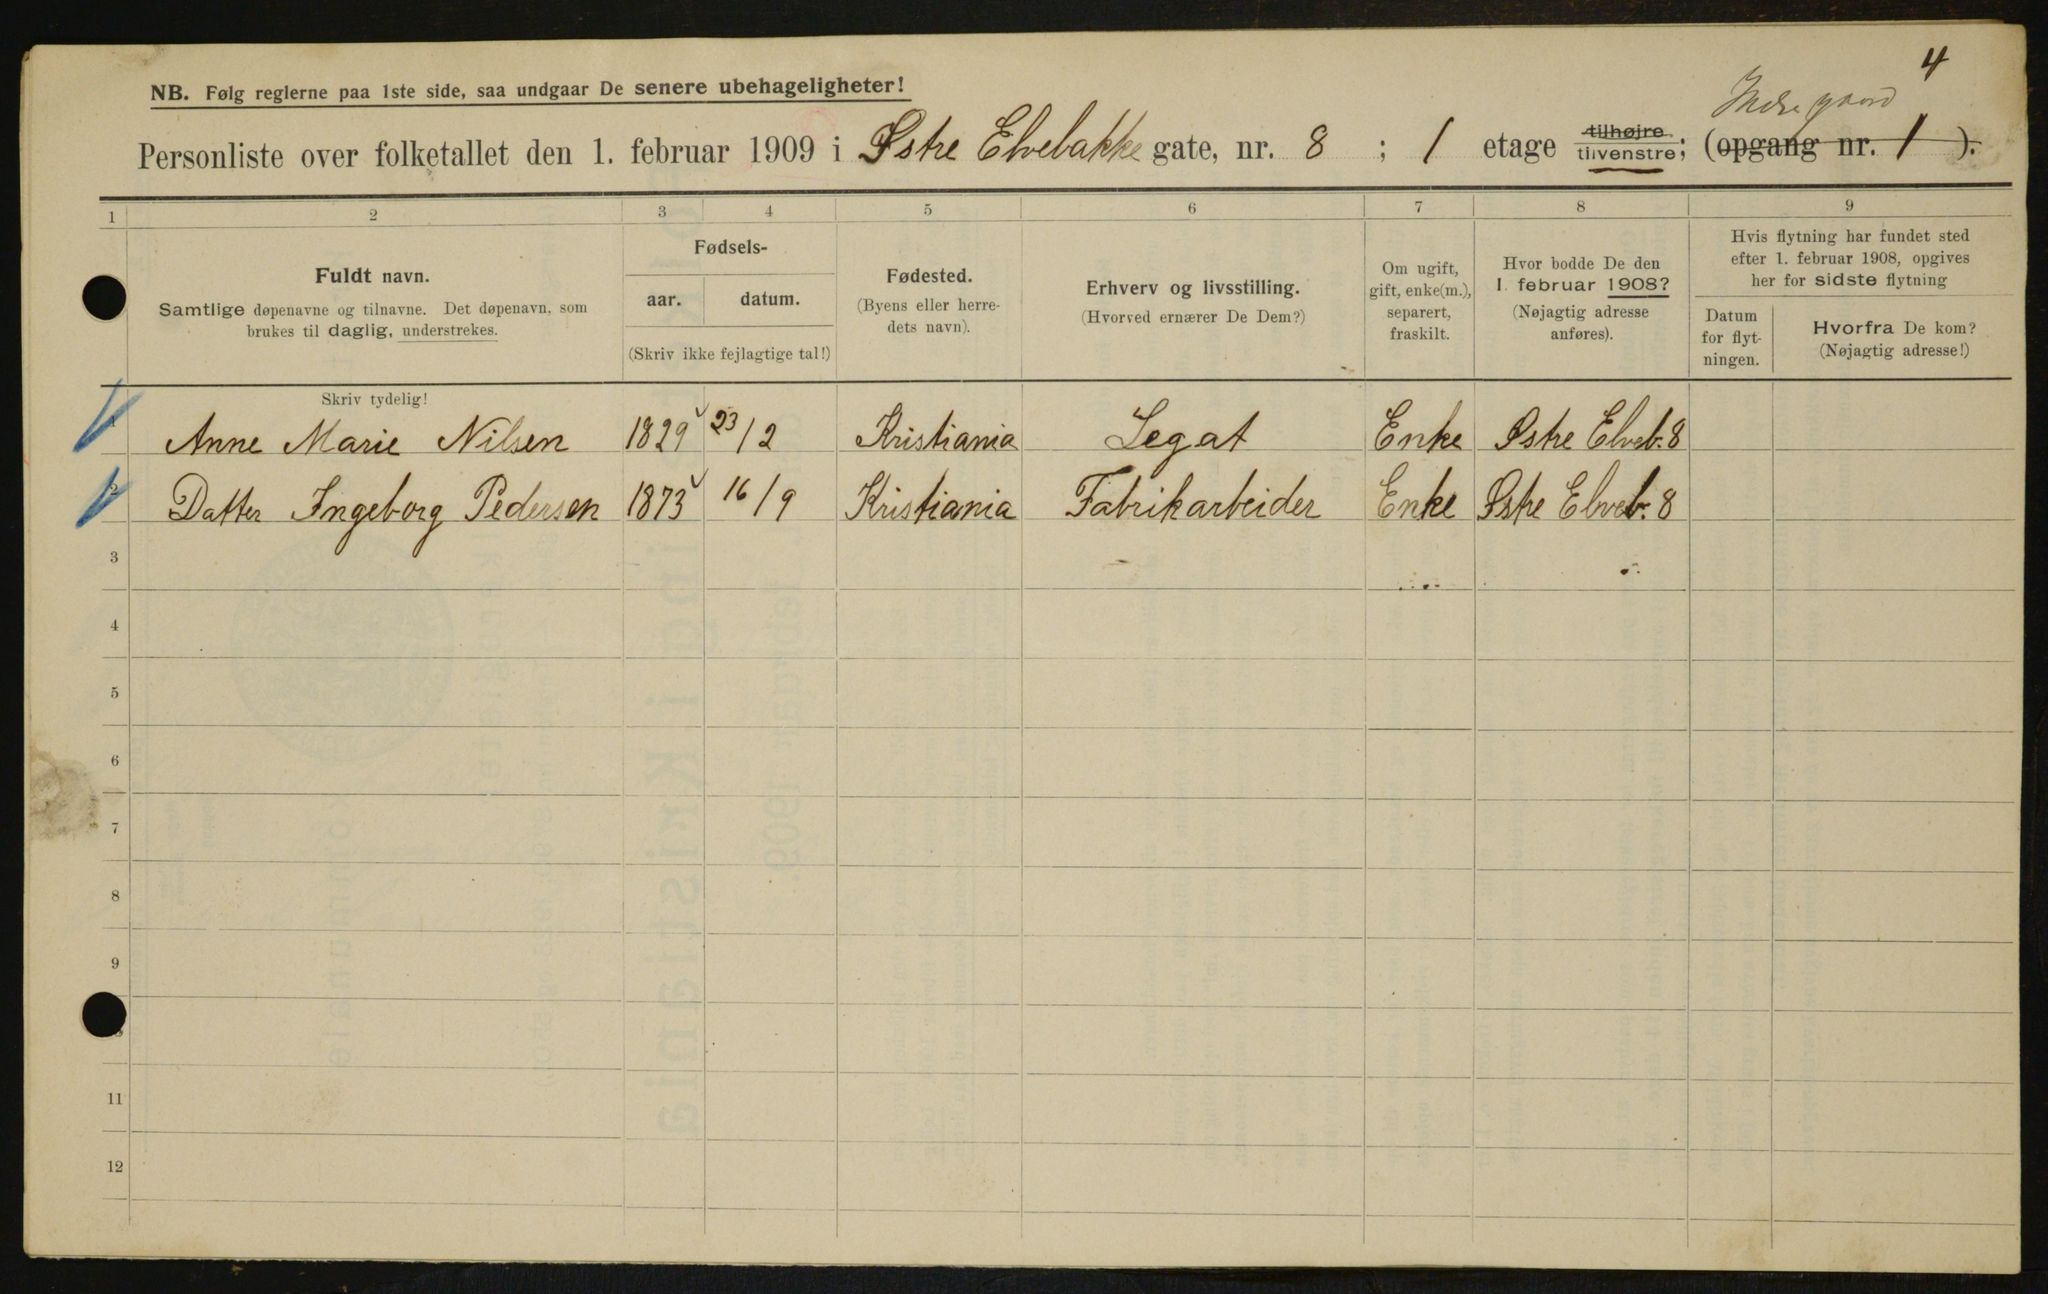 4
NB. Følg reglerne paa 1ste side, saa undgaar De senere ubehageligheter!
Indre gaard
Personliste over folketallet den 1. februar 1909 i Østre Elvebakke gate, nr. 8 ; 1 etage tilhøjre tilvenstre; (opgang nr. 1 ).
1 2 3 4 5 6 7 8 9
Fuldt navn.
Samtlige døpenavne og tilnavne. Det døpenavn, som
brukes til daglig, understrekes.
Fødsels-
aar. datum.
(Skriv ikke fejlagtige tal!)
Fødested.
(Byens eller herre-
dets navn).
Erhverv og livsstilling.
(Hvorved ernærer De Dem?)
Om ugift,
gift, enke(m.),
separert,
fraskilt.
Hvor bodde De den
1. februar 1908?
(Nøjagtig adresse
anføres).
Hvis flytning har fundet sted
efter 1. februar 1908, opgives
her for sidste flytning
Datum
for flyt-
ningen.
Hvorfra De kom?
(Nøjagtig adresse!)
Skriv tydelig!
1 Anne Marie Nilsen 1829 23/2 Kristiania Legat Enke Østre Elveb. 8
2 Datter Ingeborg Pedersen 1873 16/9 Kristiania Fabrikarbeider Enke Østre Elveb. 8
3
4
5
6
7
8
9
11
12